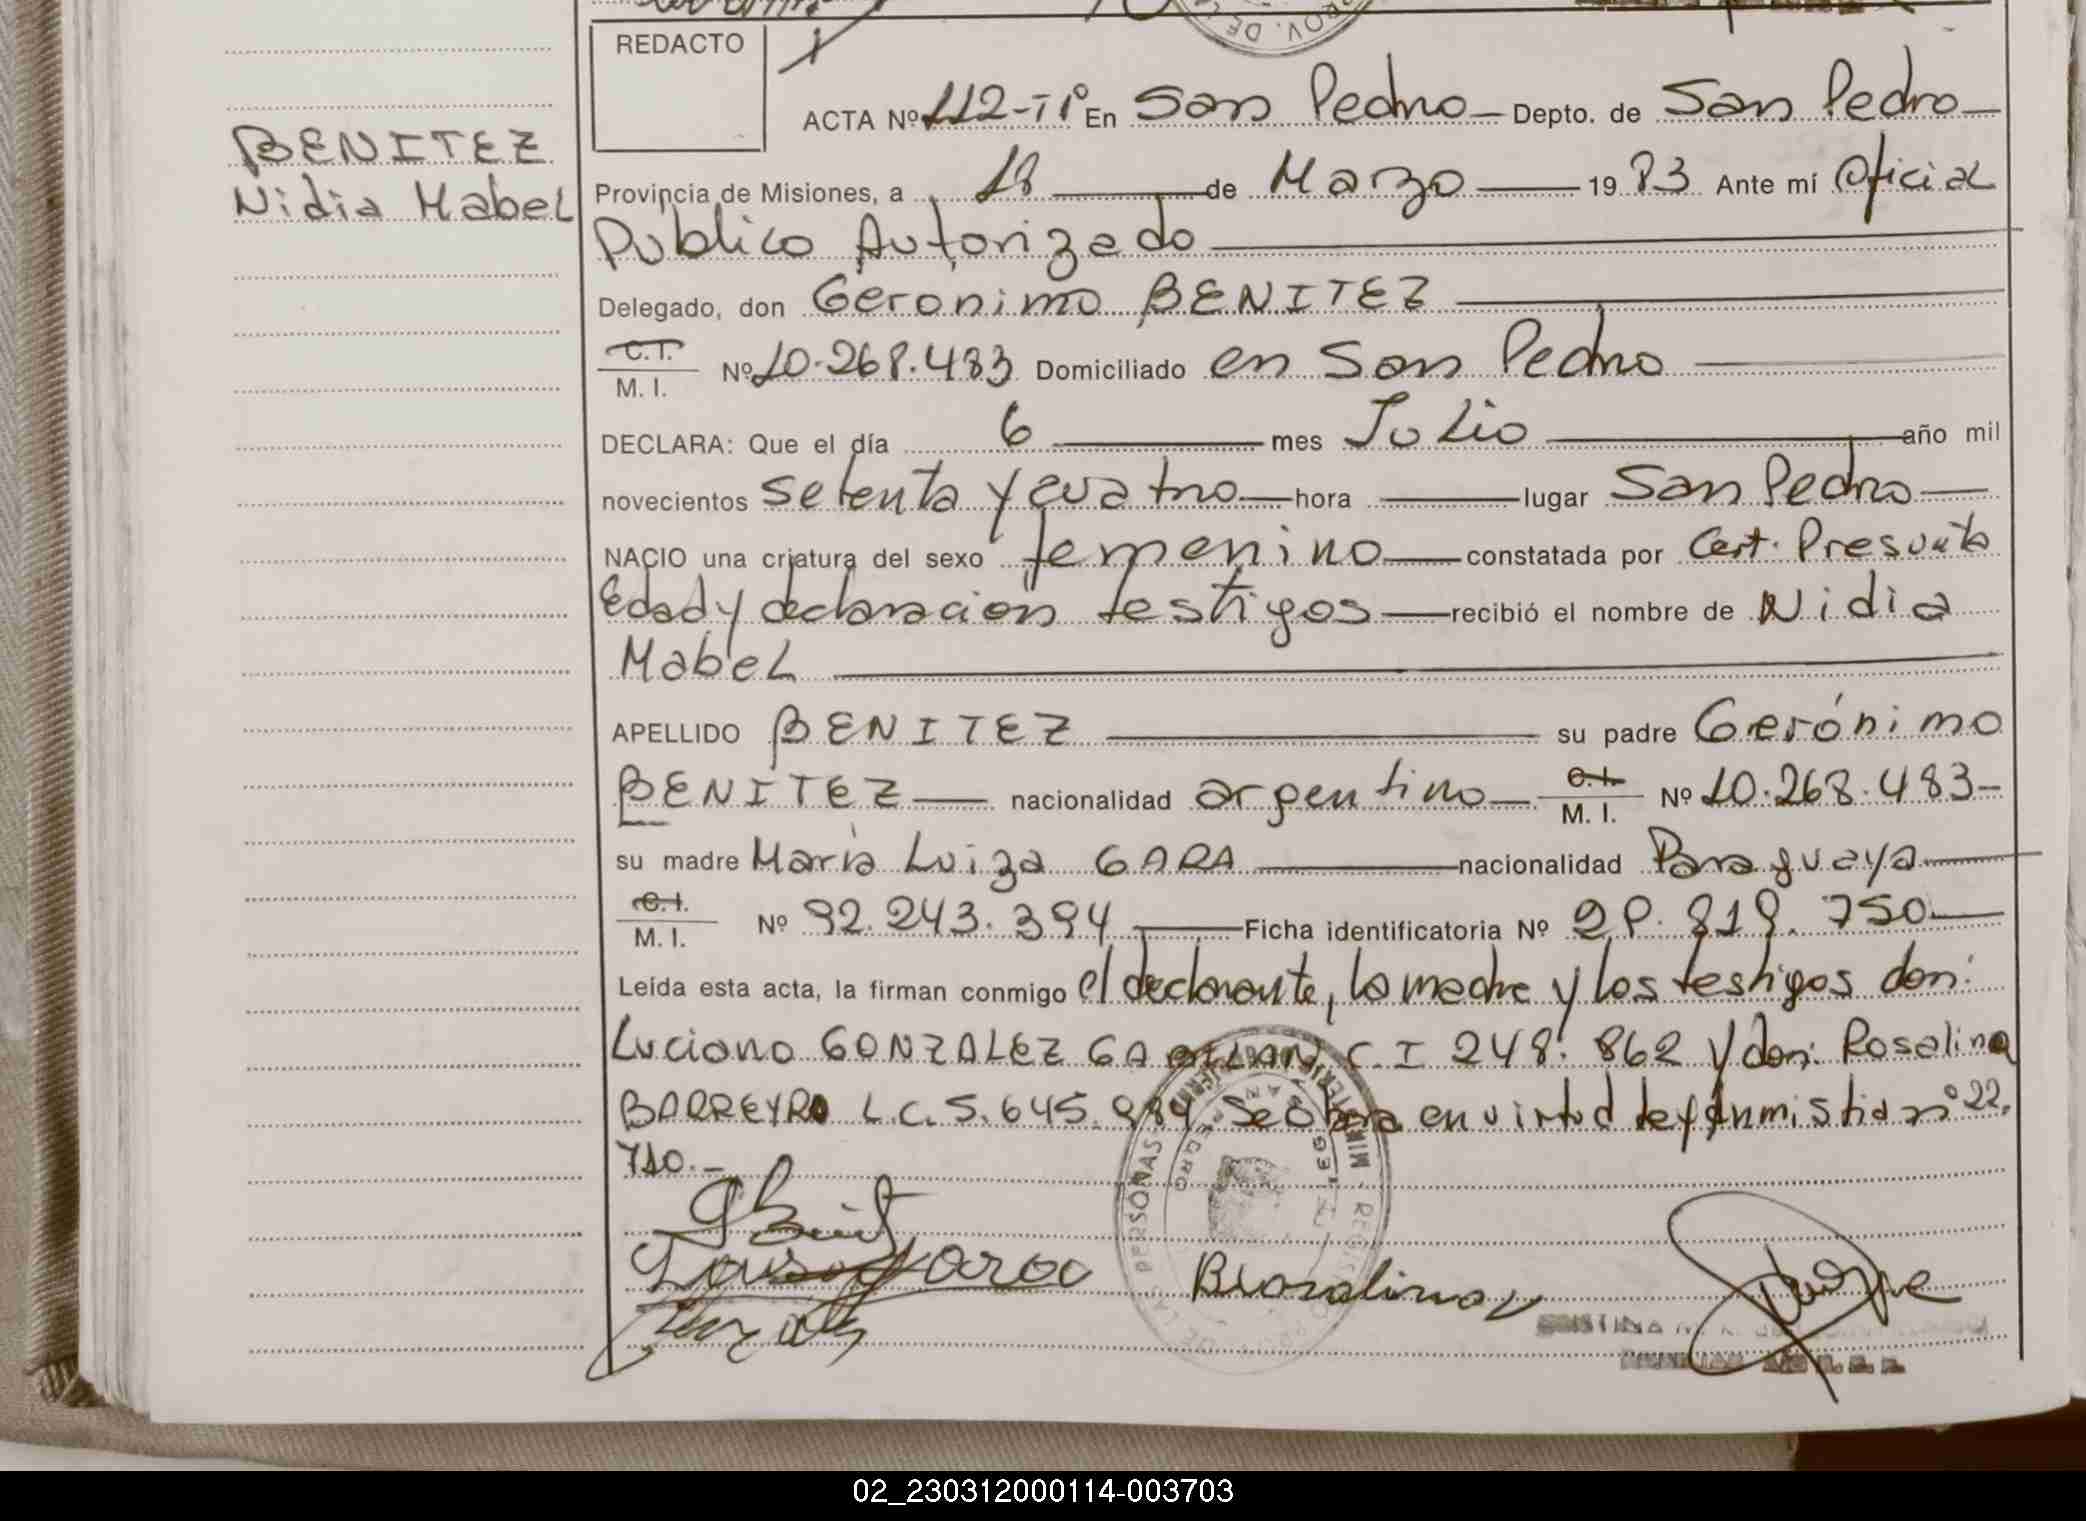 REDACTO
ACTA Nº 112-Tº1º En San Pedro Depto. de San Pedro
BENITEZ
Nidia Mabel
Provincia de Misiones, a 18 de Marzo 1983 Ante mí Oficial
Publico Autorizado
Delegado, don Geronimo BENITEZ
C.I.
M. I. Nº 10.268.483 Domiciliado en San Pedro
DECLARA: Que el día 6 mes Julio año mil
novecientos setenta y cuatro hora lugar San Pedro
NACIO una criatura del sexo femenino constatada por Cert. Presunta
Edad y declaracion testigos recibió el nombre de Nidia
Mabel
APELLIDO BENITEZ su padre Gerónimo
BENITEZ nacionalidad argentino C.I.
M. I. Nº 10.268.483-
su madre María Luiza GARA nacionalidad Paraguaya
C.I.
M. I. Nº 92.243.394 Ficha identificatoria Nº 28.819.750
Leída esta acta, la firman conmigo el declarante, la madre y los testigos don:
Luciano GONZALEZ GABILAN C.I 248.862 y don: Rosalina
BARREYRO L.C. 5.645.984 Se Obra en virtud ley Anmistia nº 22.
710.-
02_230312000114-003703